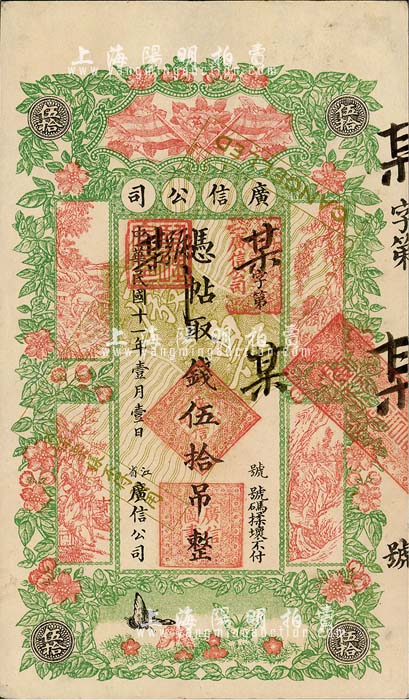 上海陽明拍賣
yangmingauction.com
伍拾
伍拾
CANCELLED
司公信廣
某字第某號
號碼揉壞不付
憑帖取錢伍拾吊整
中華民國十一年壹月壹日
江省廣信公司
某字第
某
號
上海陽明拍賣
yangmingauction.com
上海陽明拍賣
yangmingauction.com
伍拾
伍拾